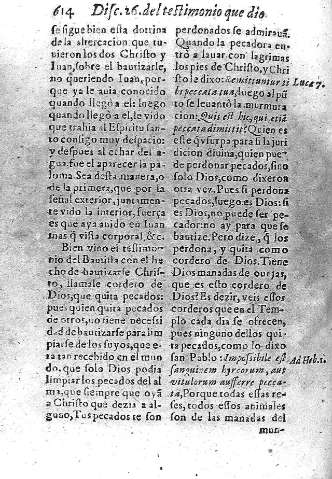 614 Disc. 26. del testimonio que dio
se sigue bien esta dotrina
de la altercacion que tu-
uieron los dos Christo y
Iuan, sobre el bautizarse,
no queriendo Iuan, por-
que ya le auia conocido
quando llegò a el: luego
quando llegò a el, le vido
que trahia al Espiritu san-
to consigo muy despacio:
y despues al echar del a-
gua, fue el aparecer la pa-
loma. Sea desta manera, o
de la primera, que por la
señal exterior, juntamen-
te vido la interior, fuerça
es que aya auido en Iuan
mas q̃ vista corporal, &c.
Bien vino el testimo-
nio del Bautista con el he-
cho de bautizarse Chris-
to, llamale cordero de
Dios, que quita pecados:
pues quien quita pecados
de otros, no tiene necessi
dad de bautizarse para lim
piarse de los suyos, que e-
ra tan recebido en el mun
do, que solo Dios podia
limpiar los pecados del al
ma, que siempre que oyã
a Christo que dezia a al-
guno, Tus pecados te son
perdonados se admirauã.
Quando la pecadora en-
trò a lauar con lagrimas
los pies de Christo, y Chri
sto le dixo: Remittuntur ti
bi peccata tua, luego al pũ
to se leuantò la murmura
cion: Quis est hic, qui etiã
peccata dimittit? Quien es
este q̃ vsurpa para si la ju-
ridicion diuina, quien pue-
de perdonar pecados, sino
solo Dios, como dixeron
otra vez. Pues si perdona
pecados, luego es Dios: si
es Dios, no puede ser pe-
cador: no ay para que se
bautize. Pero dize, q̃ los
perdona, y quita como
cordero de Dios. Tiene
Dios manadas de ouejas,
que es esto cordero de
Dios? Es dezir, veis essos
corderos que en el Tem-
plo cada dia se ofrecen,
pues ninguno dellos qui-
ta pecados, como lo dixo
san Pablo: Impossibile est
sanguinem hyrcorum, aut
vitulorum aufferre pecca-
ta, Porque todas essas re-
ses, todos essos animales
son de las manadas del
mun-
Luca 7.
Ad Heb. 1.